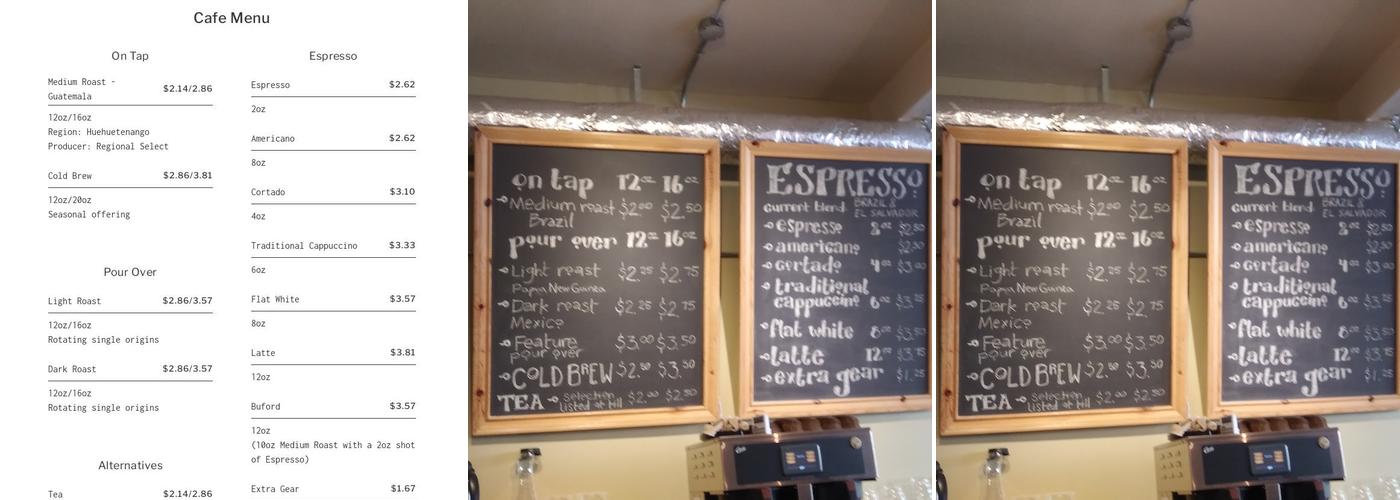 Cafe Menu
On Tap
Medium Roast - Guatemala $2.14/2.86
12oz/16oz
Region: Huehuetenango
Producer: Regional Select
Cold Brew $2.86/3.81
12oz/20oz
Seasonal offering
Pour Over
Light Roast $2.86/3.57
12oz/16oz
Rotating single origins
Dark Roast $2.86/3.57
12oz/16oz
Rotating single origins
Alternatives
Tea $2.14/2.86
Espresso
Espresso $2.62
2oz
Americano $2.62
8oz
Cortado $3.10
4oz
Traditional Cappuccino $3.33
6oz
Flat White $3.57
8oz
Latte $3.81
12oz
Buford $3.57
12oz
(10oz Medium Roast with a 2oz shot
of Espresso)
Extra Gear $1.67
on tap 12oz 16oz
Medium roast $2.00 $2.50
Brazil
pour over 12oz 16oz
Light roast $2.25 $2.75
Papua New Guinea
Dark roast $2.25 $2.75
Mexico
Feature $3.00 $3.50
pour over
COLD BREW $2.50 $3.50
TEA selection listed at till $2.00 $2.50
ESPRESSO
current blend BRAZIL & EL SALVADOR
espresso 2oz $2.50
americano $2.50
cortado 4oz $3.00
traditional
cappuccino 6oz $3.25
flat white 8oz $3.50
latte 12oz $3.75
extra gear $1.25
on tap 12oz 16oz
Medium roast $2.00 $2.50
Brazil
pour over 12oz 16oz
Light roast $2.25 $2.75
Papua New Guinea
Dark roast $2.25 $2.75
Mexico
Feature $3.00 $3.50
pour over
COLD BREW $2.50 $3.50
TEA selection listed at till $2.00 $2.50
ESPRESSO
current blend BRAZIL & EL SALVADOR
espresso 2oz $2.50
americano $2.50
cortado 4oz $3.00
traditional
cappuccino 6oz $3.25
flat white 8oz $3.50
latte 12oz $3.75
extra gear $1.25